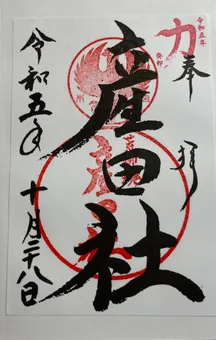 令和五年
癸卯
奉拝
産田社
令和五年
十月二十八日